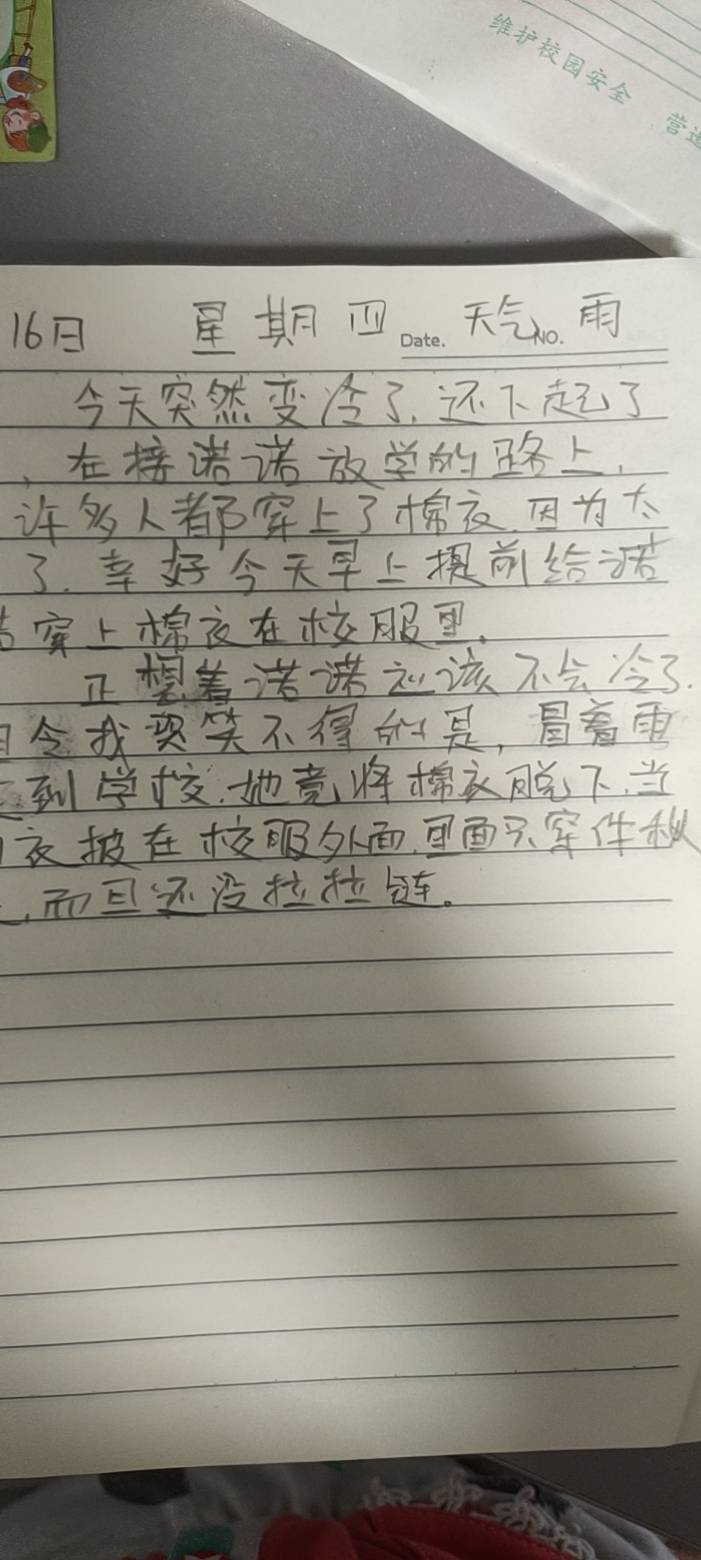 维护校园安全 营造
16日 星期四 Date. 天气 NO. 雨
今天突然变冷了.还下起了
、在接诺诺放学的路上,
许多人都穿上了棉衣.因为太
了.幸好今天早上提前给诺
穿上棉衣在校服里.
正想着诺诺应该不会冷了.
令我哭笑不得的是,冒着雨
到学校.她竟将棉衣脱下.当
衣披在校服外面.里面只穿件秋
,而且还没拉拉链。